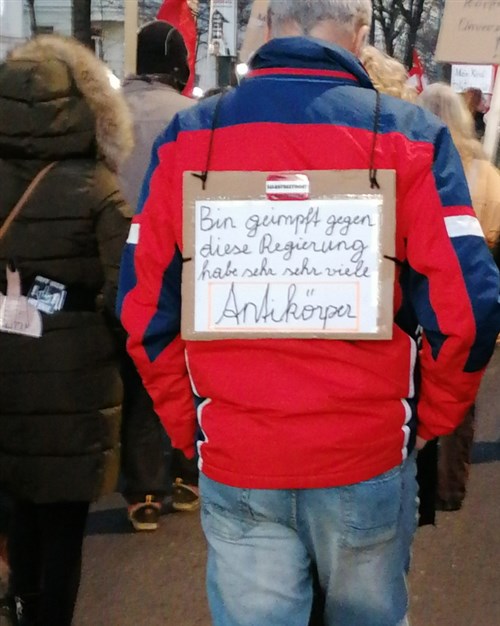 Bin geimpft gegen
diese Regierung
habe sehr sehr viele
Antikörper